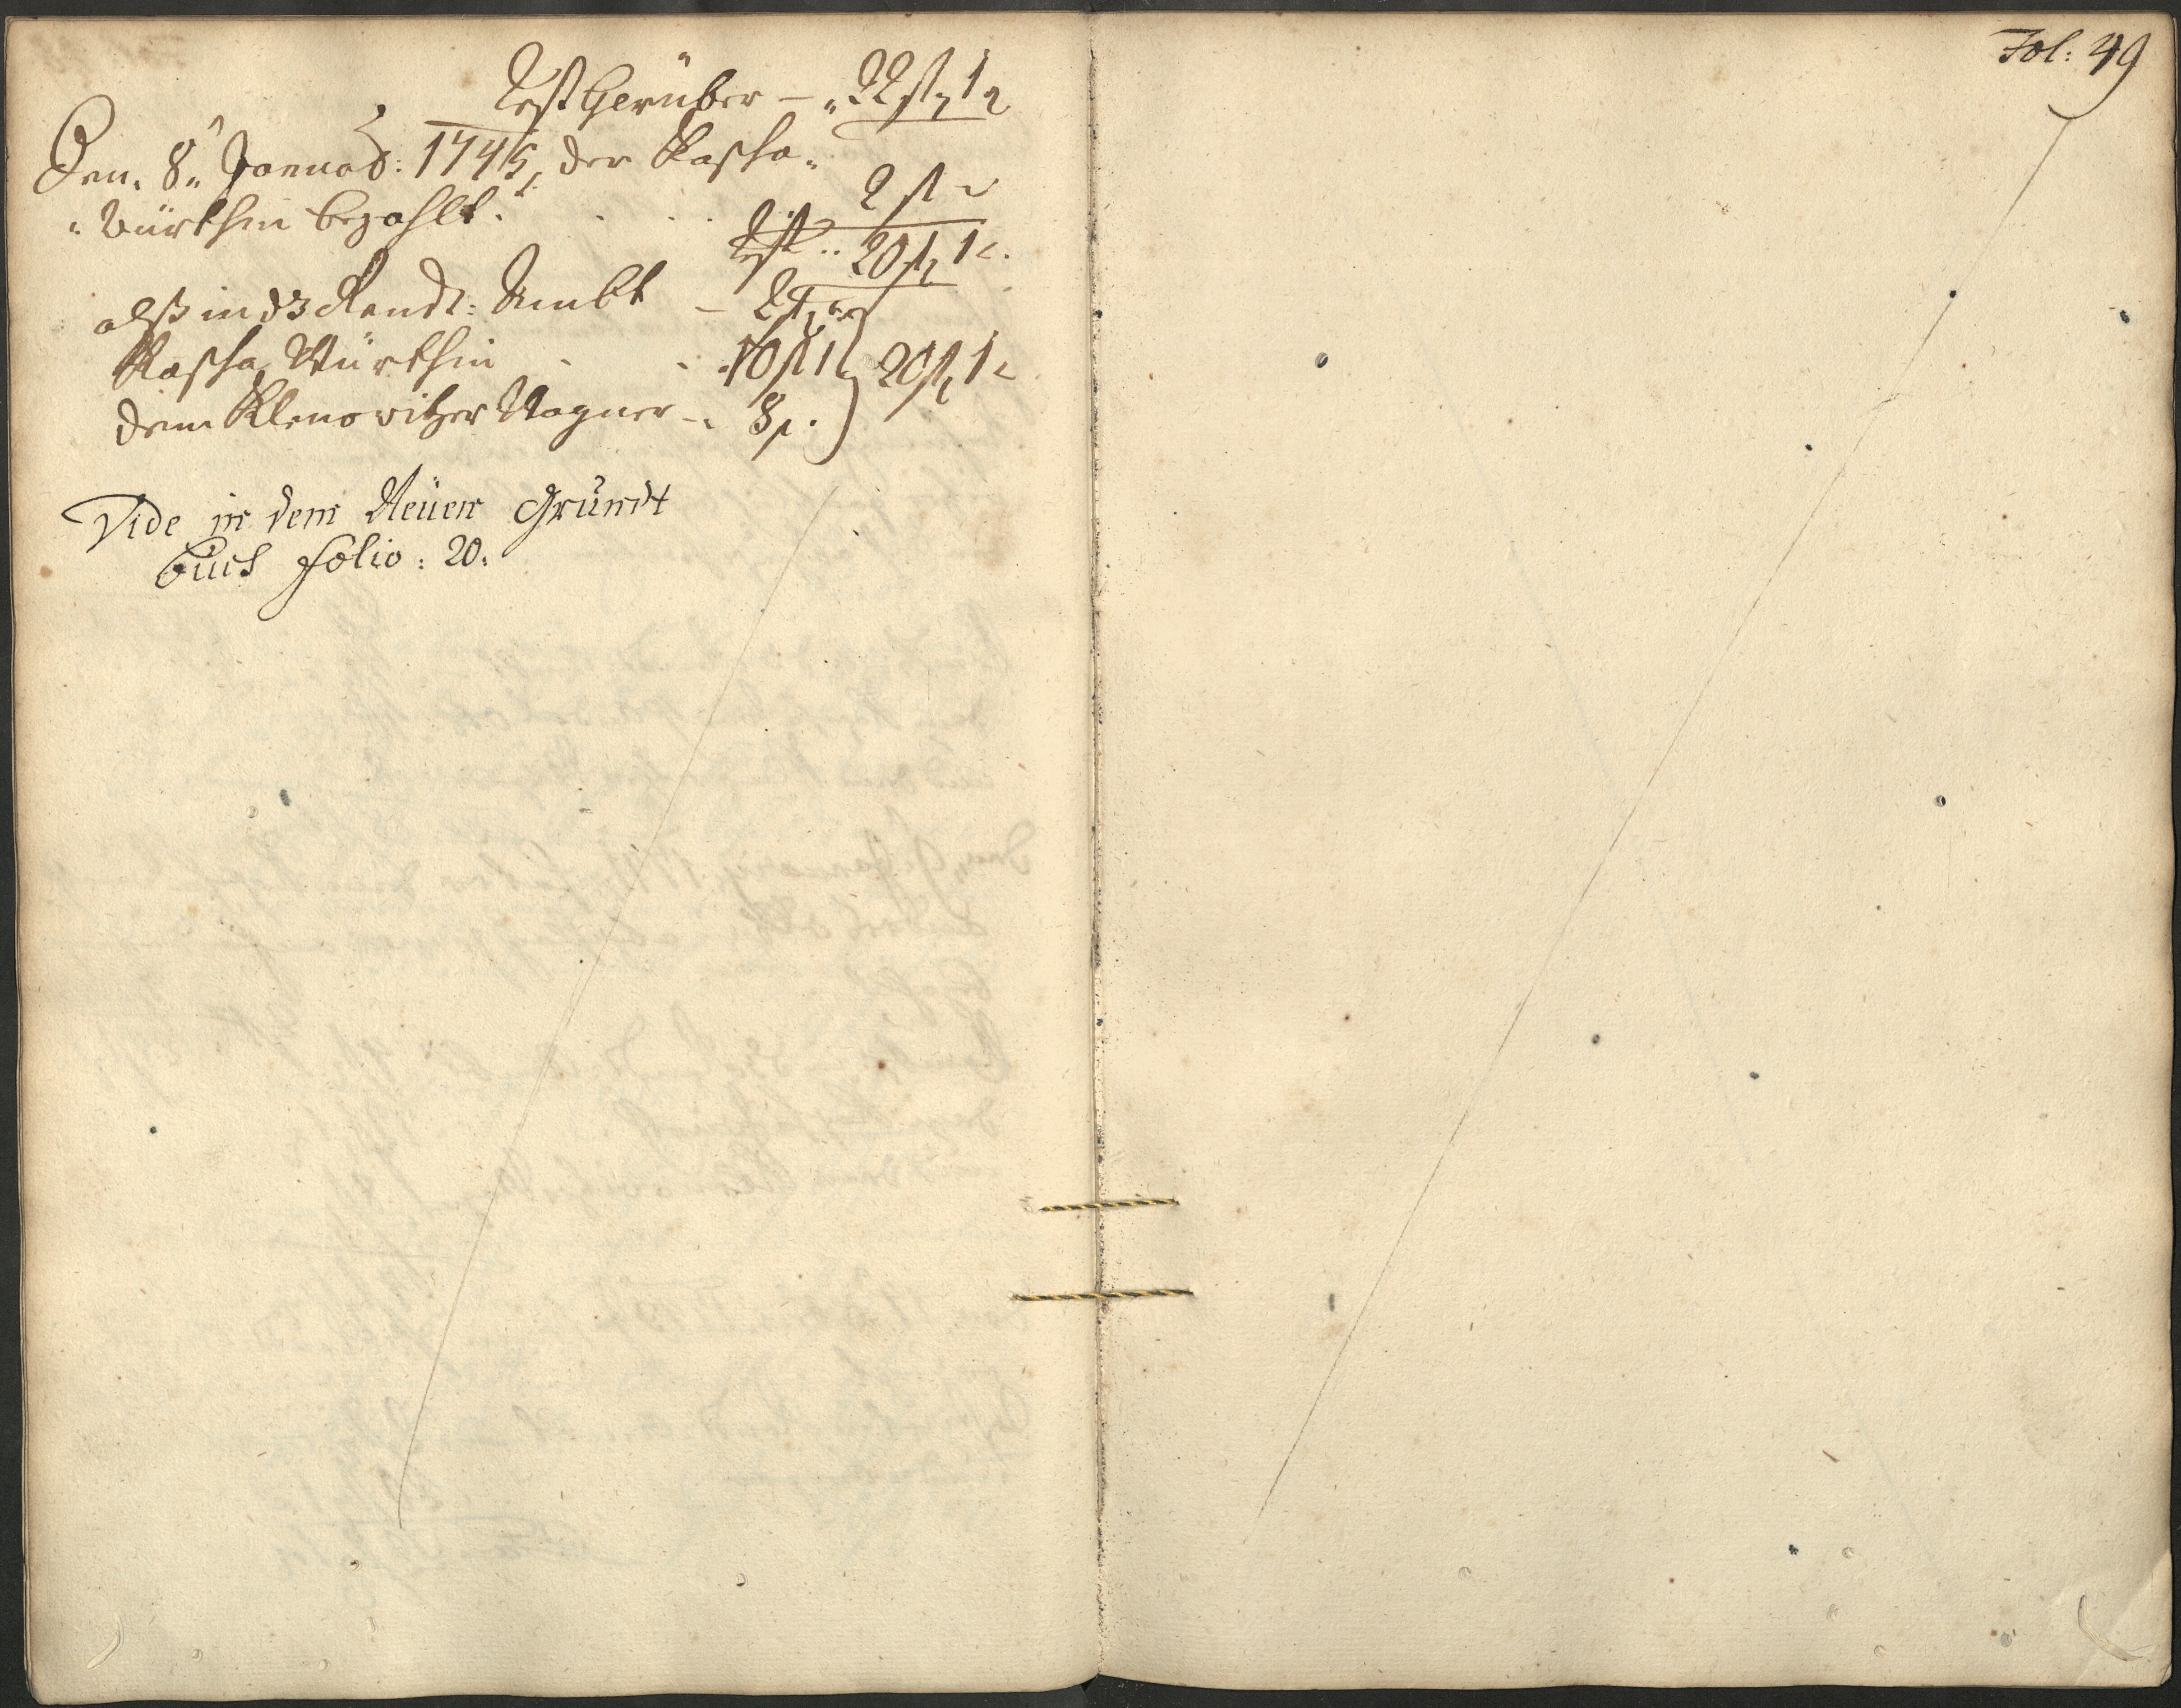 Rest herüber — 22 fl 1 x
Den 8. Januar: 1745 der Kascha-
würthin bezahlt. . . . 2 fl
Rest .. 20 fl 1 x.
alß in ds Rendt: Ambt — 2 fl
Kascha Würthin . . 10 fl 1
20 fl 1 x
dem Klenowitzer Wagner 8 fl.
Vide in dem Neüen Grundt
buch folio: 20.
Fol: 49